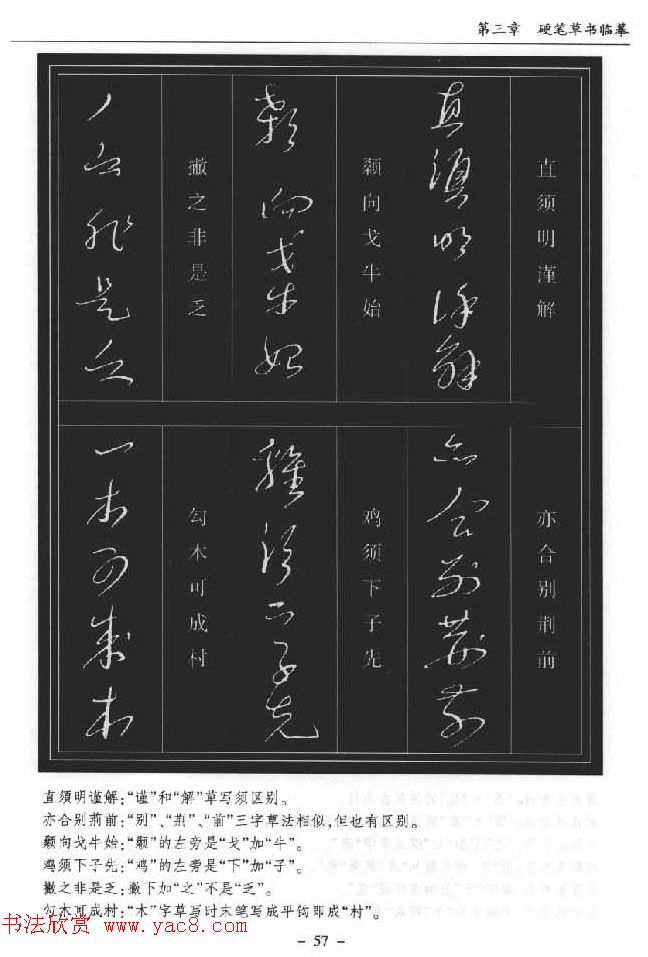 第三章 硬笔草书临摹
直须明谨解
亦合别荆前
颡向戈牛始
鸡须下子先
撇之非是乏
勾木可成村
直須明谨解:“谨”和“解”草写须区别。
亦合别荆前:“别”、“荆”、“前”三字草法相似,但也有区别。
颡向戈牛始:“颡”的左旁是“戈”加“牛”。
鸡须下子先:“鸡”的左旁是“下”加“子”。
撇之非是乏:撇下加“之”不是“乏”。
勾木可成村:“木”字草写时末笔写成平钩即成“村”。
书法欣赏 www.yac8.com
- 57 -